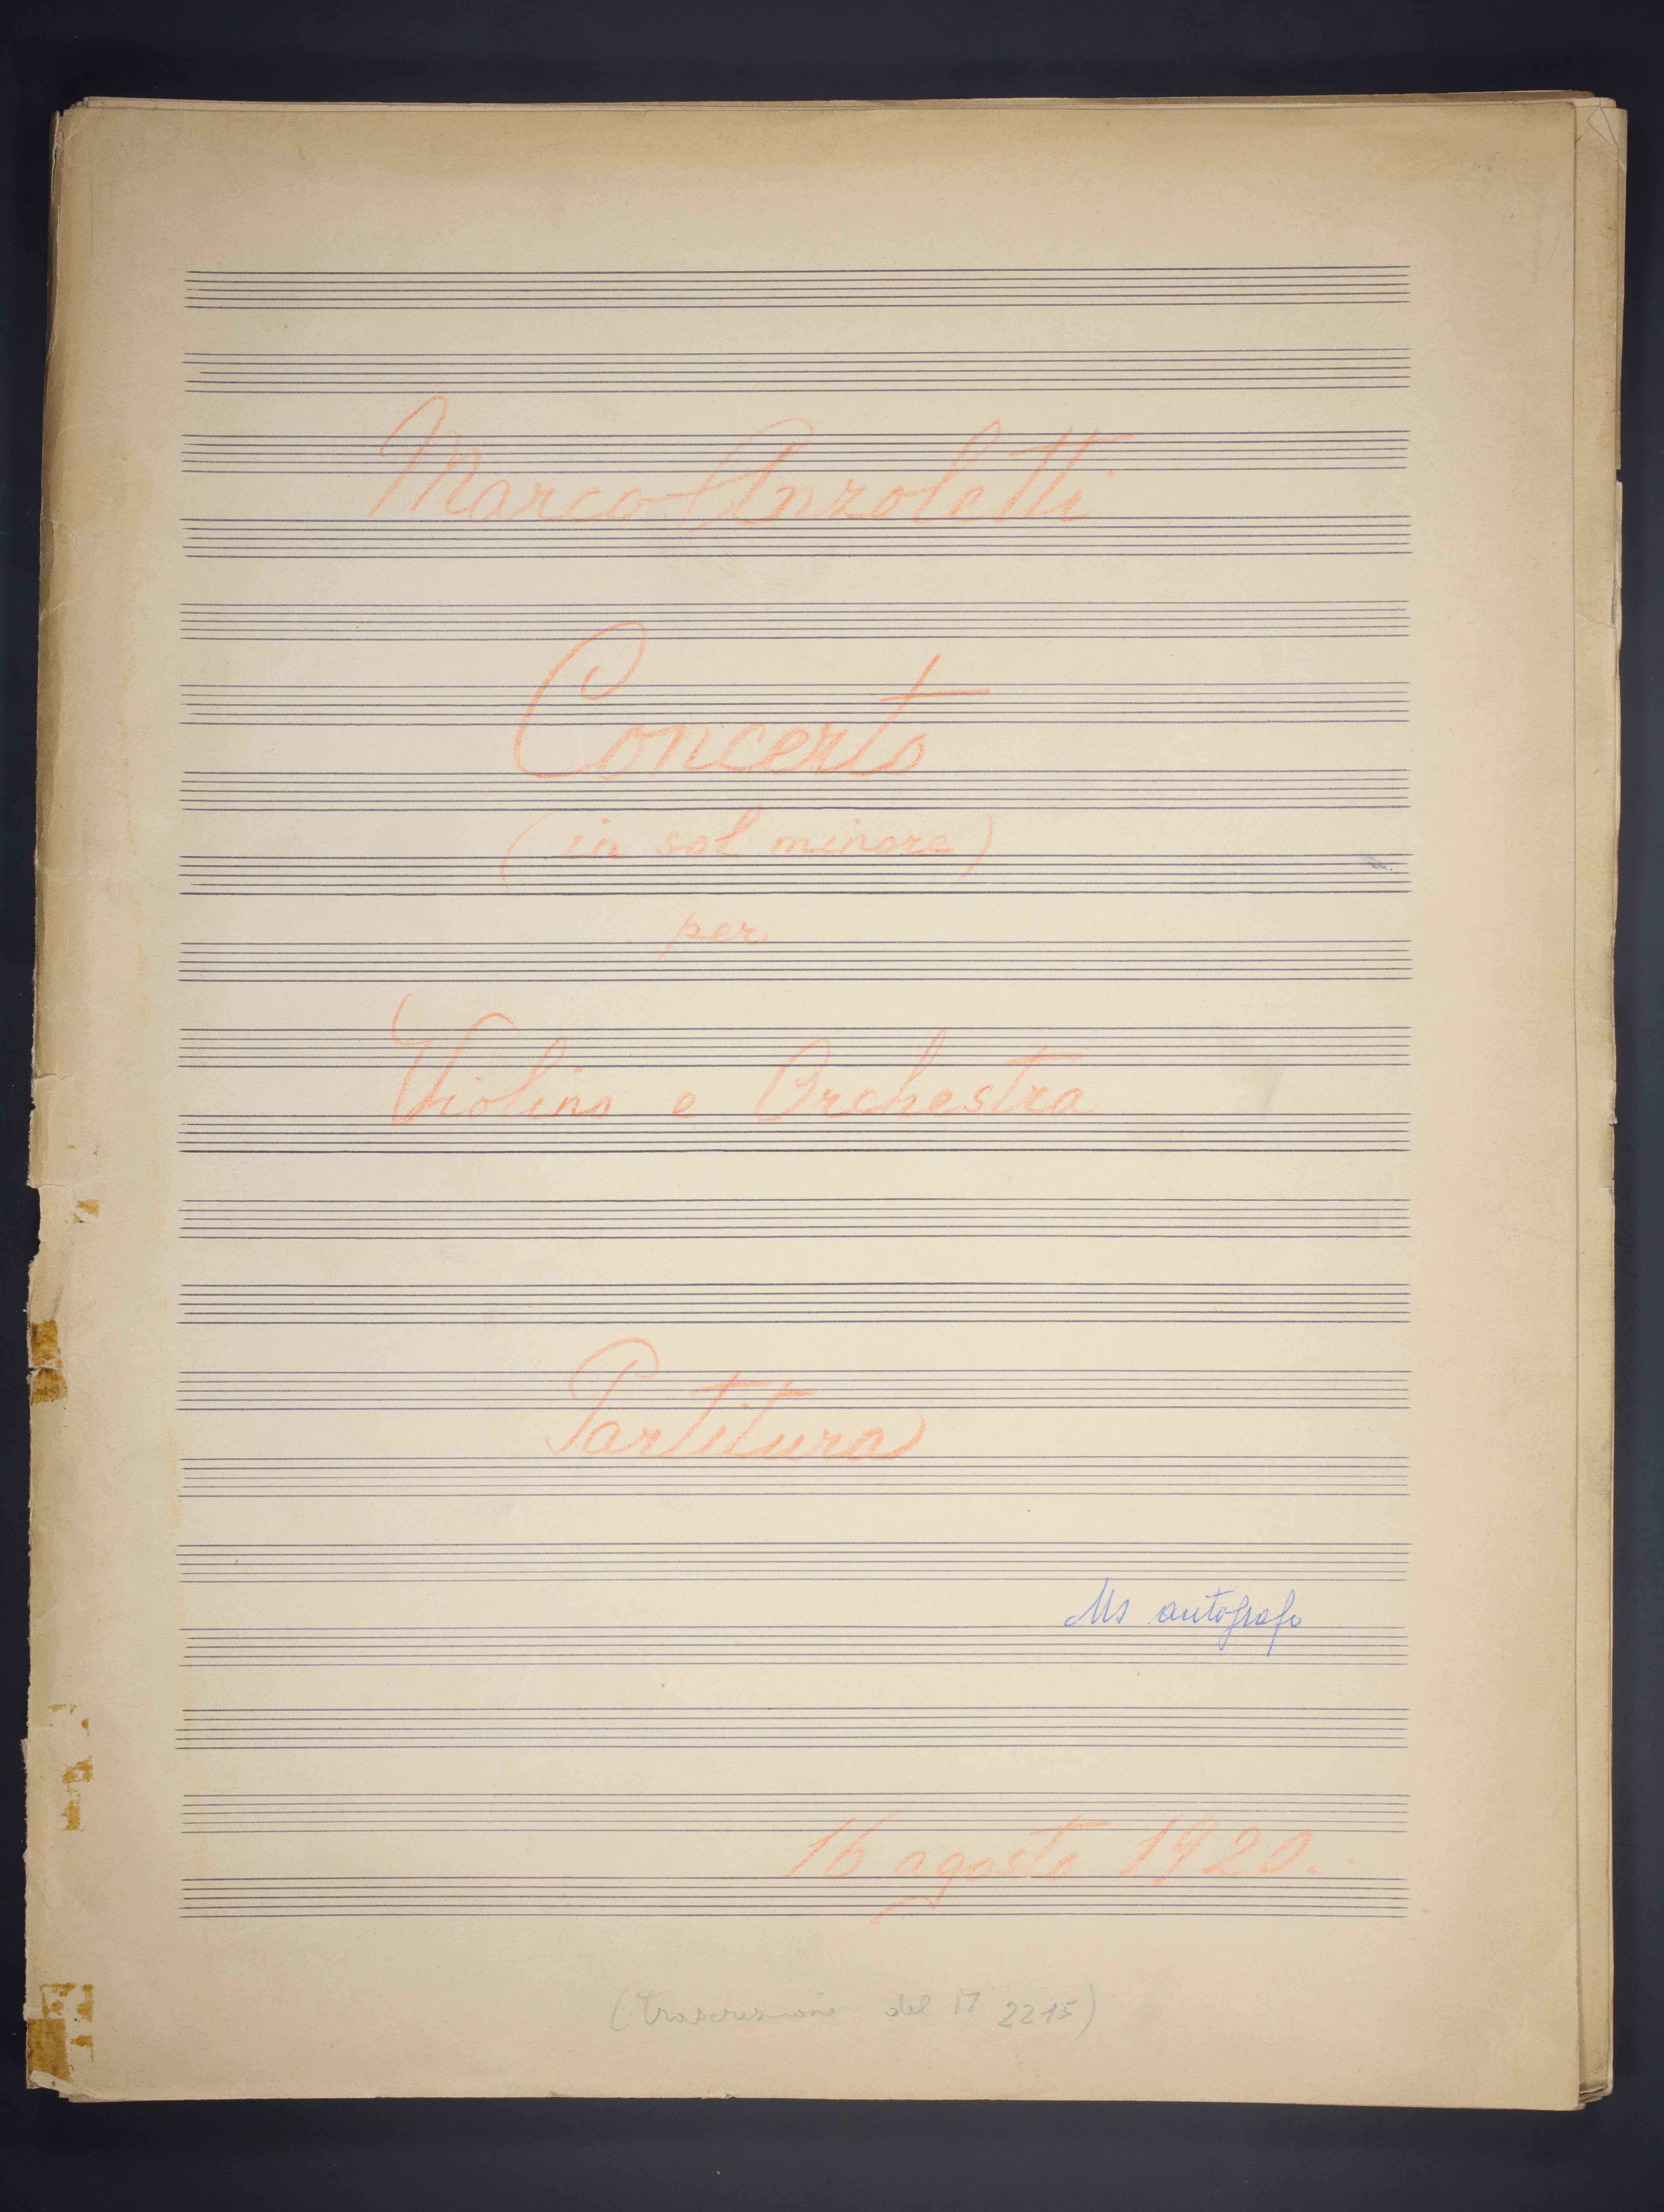 Marco Anzoletti
Concerto
(in sol minore)
per
Violino e Orchestra
Partitura
Ms autografo
16 agosto 1920.
(trascrizione del M 2215)